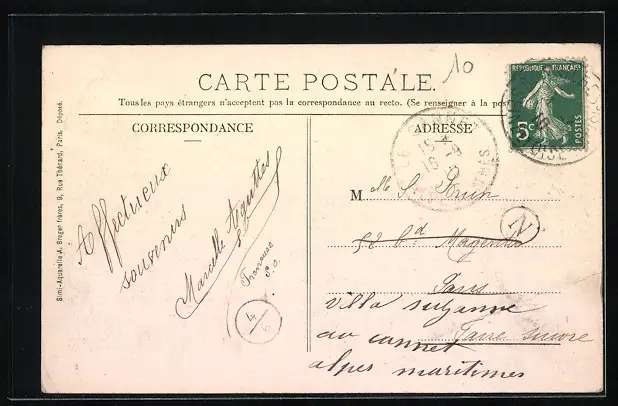 10
CARTE POSTALE.
Tous les pays étrangers n'acceptent pas la correspondance au recto. (Se renseigner à la poste
RÉPUBLIQUE FRANÇAISE
5c
POSTES
OISE
CORRESPONDANCE
ADRESSE
LE CANNET
Simi-Aquarelle A. Breger frères, 9, Rue Thénard, Paris. Déposé.
Affectueux
souvenirs
Marcelle
S. O.
4
5
M
52 Bd Magenta
N
Paris
villa suzanne
au cannet
Faire suivre
alpes maritimes